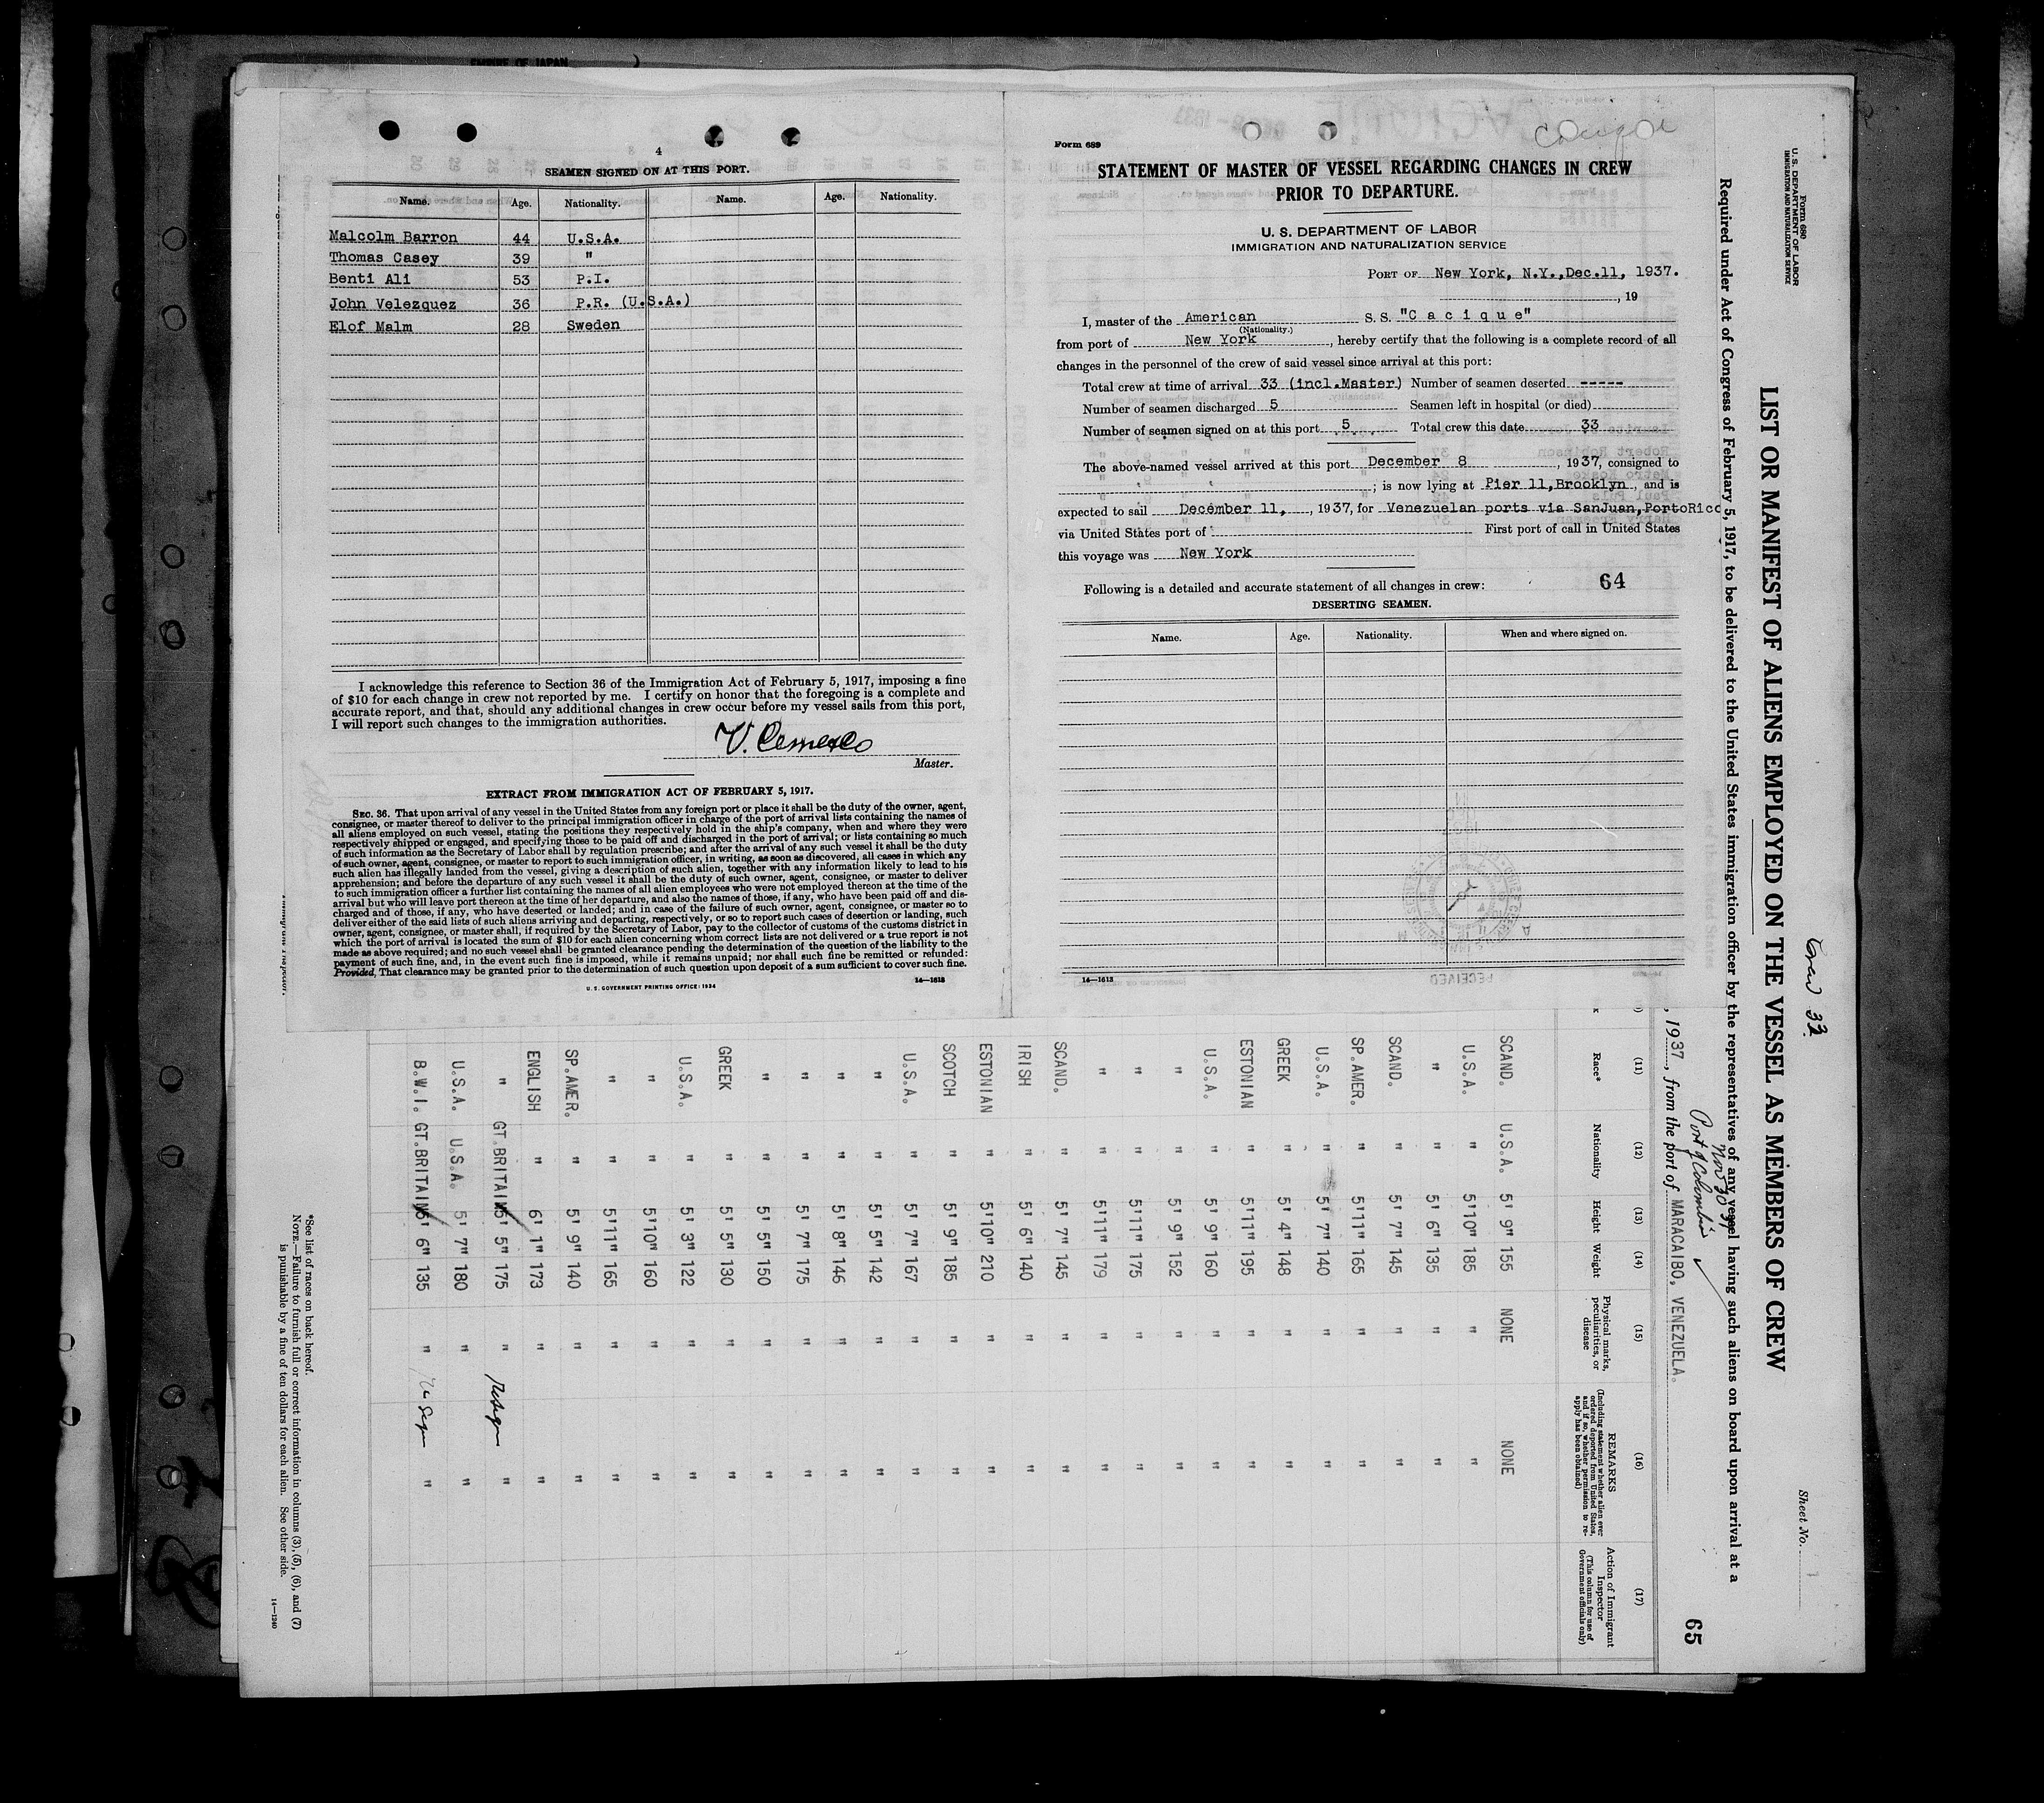 EMPIRE OF JAPAN
4
SEAMEN SIGNED ON AT THIS PORT.
Name. Age. Nationality. Name. Age. Nationality.
Malcolm Barron 44 U.S.A.
Thomas Casey 39 "
Benti Ali 53 P.I.
John Velezquez 36 P.R. (U.S.A.)
Elof Malm 28 Sweden
I acknowledge this reference to Section 36 of the Immigration Act of February 5, 1917, imposing a fine
of $10 for each change in crew not reported by me. I certify on honor that the foregoing is a complete and
accurate report, and that, should any additional changes in crew occur before my vessel sails from this port,
I will report such changes to the immigration authorities.
Master.
EXTRACT FROM IMMIGRATION ACT OF FEBRUARY 5, 1917.
SEC. 36. That upon arrival of any vessel in the United States from any foreign port or place it shall be the duty of the owner, agent,
consignee, or master thereof to deliver to the principal immigration officer in charge of the port of arrival lists containing the names of
all aliens employed on such vessel, stating the positions they respectively hold in the ship's company, when and where they were
respectively shipped or engaged, and specifying those to be paid off and discharged in the port of arrival; or lists containing so much
of such information as the Secretary of Labor shall by regulation prescribe; and after the arrival of any such vessel it shall be the duty
of such owner, agent, consignee, or master to report to such immigration officer, in writing, as soon as discovered, all cases in which any
such alien has illegally landed from the vessel, giving a description of such alien, together with any information likely to lead to his
apprehension; and before the departure of any such vessel it shall be the duty of such owner, agent, consignee, or master to deliver
to such immigration officer a further list containing the names of all alien employees who were not employed thereon at the time of the
arrival but who will leave port thereon at the time of her departure, and also the names of those, if any, who have been paid off and dis-
charged and of those, if any, who have deserted or landed; and in case of the failure of such owner, agent, consignee, or master so to
deliver either of the said lists of such aliens arriving and departing, respectively, or so to report such cases of desertion or landing, such
owner, agent, consignee, or master shall, if required by the Secretary of Labor, pay to the collector of customs of the customs district in
which the port of arrival is located the sum of $10 for each alien concerning whom correct lists are not delivered or a true report is not
made as above required; and no such vessel shall be granted clearance pending the determination of the question of the liability to the
payment of such fine, and, in the event such fine is imposed, while it remains unpaid; nor shall such fine be remitted or refunded:
Provided, That clearance may be granted prior to the determination of such question upon deposit of a sum sufficient to cover such fine.
U. S. GOVERNMENT PRINTING OFFICE: 1934 14—1613
Form 689
STATEMENT OF MASTER OF VESSEL REGARDING CHANGES IN CREW
PRIOR TO DEPARTURE.
U. S. DEPARTMENT OF LABOR
IMMIGRATION AND NATURALIZATION SERVICE
PORT OF New York, N.Y.,Dec.11, 1937.
, 19
I, master of the American S. S. "C a c i q u e"
(Nationality.)
from port of New York, hereby certify that the following is a complete record of all
changes in the personnel of the crew of said vessel since arrival at this port:
Total crew at time of arrival 33 (incl.Master) Number of seamen deserted -----
Number of seamen discharged 5 Seamen left in hospital (or died)
Number of seamen signed on at this port 5 Total crew this date 33
The above-named vessel arrived at this port December 8, 1937, consigned to
; is now lying at Pier 11,Brooklyn, and is
expected to sail December 11, , 1937, for Venezuelan ports via SanJuan,PortoRico
via United States port of First port of call in United States
this voyage was New York
Following is a detailed and accurate statement of all changes in crew: 64
DESERTING SEAMEN.
Name. Age. Nationality. When and where signed on.
14—1613
RECEIVED
Form 680
U. S. DEPARTMENT OF LABOR
IMMIGRATION AND NATURALIZATION SERVICE
Crew 33
Sheet No. 1
LIST OR MANIFEST OF ALIENS EMPLOYED ON THE VESSEL AS MEMBERS OF CREW
Required under Act of Congress of February 5, 1917, to be delivered to the United States immigration officer by the representatives of any vessel having such aliens on board upon arrival at a
65
Port of Columbia
, 1937, from the port of MARACAIBO, VENEZUELA.
(11) (12) (13) (14) (15) (16) (17)
Race* Nationality Height Weight Physical marks, peculiarities, or disease REMARKS (Including statement whether alien ever ordered deported from United States, and if so, whether permission to re-apply has been obtained) Action of Immigrant Inspector (This column for use of Government officials only)
SCAND. U.S.A. 5' 9" 155 NONE NONE
U.S.A. " 5'10" 185 " "
" " 5' 6" 135 " "
SCAND. " 5' 7" 145 " "
SP.AMER. " 5'11" 165 " "
U.S.A. " 5' 7" 140 " "
GREEK " 5' 4" 148 " "
ESTONIAN " 5'11" 195 " "
U.S.A. " 5' 9" 160 " "
" " 5' 9" 152 " "
" " 5'11" 175 " "
" " 5'11" 179 " "
SCAND. " 5' 7" 145 " "
IRISH " 5' 6" 140 " "
ESTONIAN " 5'10" 210 " "
SCOTCH " 5' 9" 185 " "
U.S.A. " 5' 7" 167 " "
" " 5' 5" 142 " "
" " 5' 8" 146 " "
" " 5' 7" 175 " "
" " 5' 5" 150 " "
GREEK " 5' 5" 130 " "
U.S.A. " 5' 3" 122 " "
" " 5'10" 160 " "
" " 5'11" 165 " "
SP.AMER. " 5' 9" 140 " "
ENGLISH " 6' 1" 173 " "
" GT.BRITAIN 5' 5" 175 " "
U.S.A. U.S.A. 5' 7" 180 " "
B.W.I. GT.BRITAIN 5' 6" 135 " "
*See list of races on back hereof.
NOTE.—Failure to furnish full or correct information in columns (3), (5), (6), and (7)
is punishable by a fine of ten dollars for each alien. See other side.
14—1240